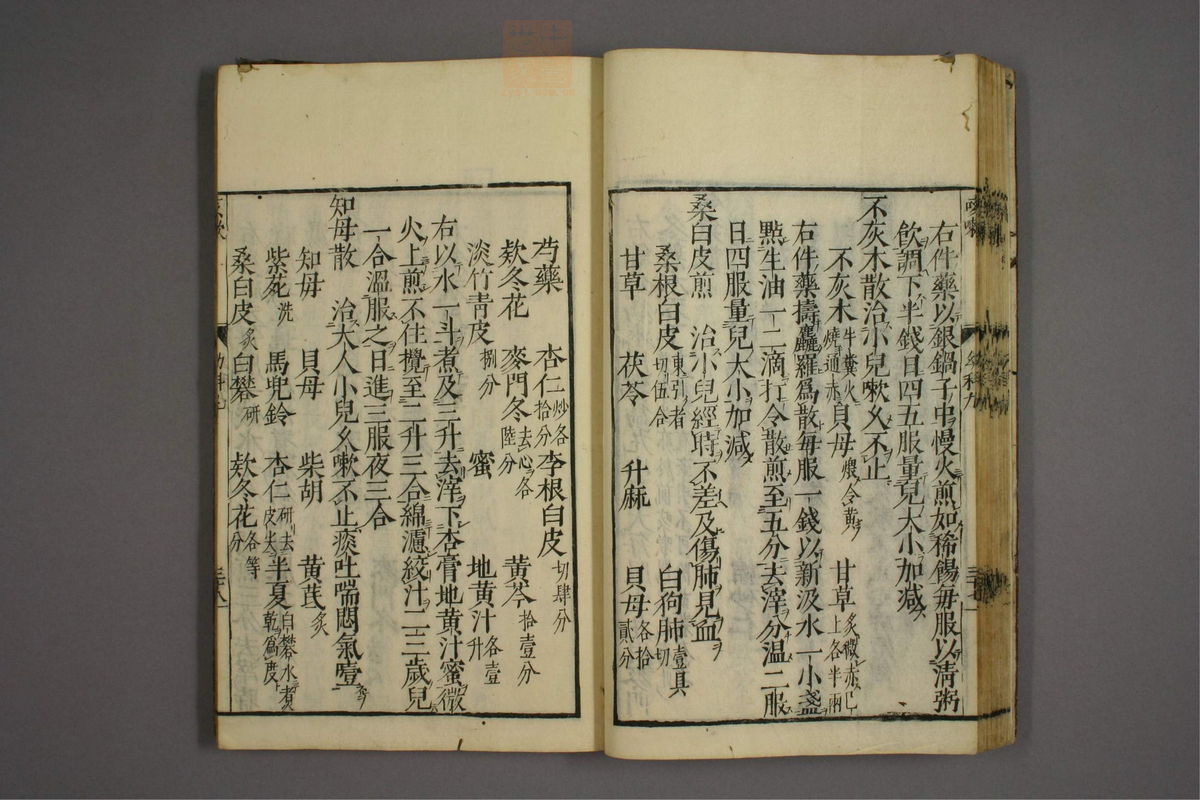 右件藥以銀鍋子中慢火煎如稀餳每服以清粥
飲調下半錢日四五服量兒大小加減
不灰木散治小兒嗽久不止
不灰木牛糞火燒通赤 貝母煨令黃 甘草炙微赤已上各半兩
右件藥擣麤羅爲散每服一錢以新汲水一小盞
㸃生油一二滴打令散煎至五分去滓分温二服
日四服量兒大小加減
桑白皮煎 治小兒經時不差及傷肺見血
桑根白皮東引者切伍合 白狗肺壹具切
甘草 茯苓 升麻 貝母各拾貳分
芍藥 杏仁炒各拾分 李根白皮切肆分
欵冬花 麥門冬去心各陸分 黃芩拾壹分
淡竹青皮捌分 蜜 地黃汁各壹升
右以水一斗煮及三升去滓下杏膏地黃汁蜜微
火上煎不住攪至二升三合綿濾絞汁二三歲兒
一合溫服之日進三服夜三合
知母散 治大人小兒久嗽不止痰吐喘悶氣噎
知母 貝母 柴胡 黃茋炙
紫菀洗 馬兜鈴 杏仁研去皮尖 半夏白礬水煮乾爲度
桑白皮炙 白礬研 欵冬花各等分